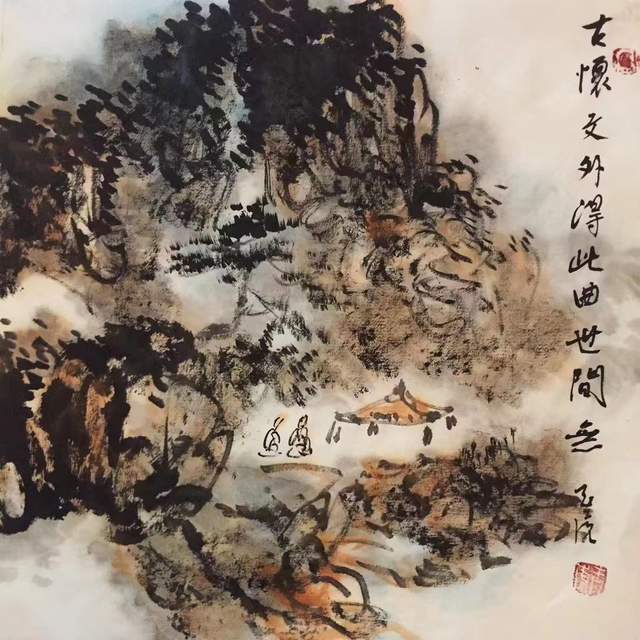 古懷文外得此曲世間無